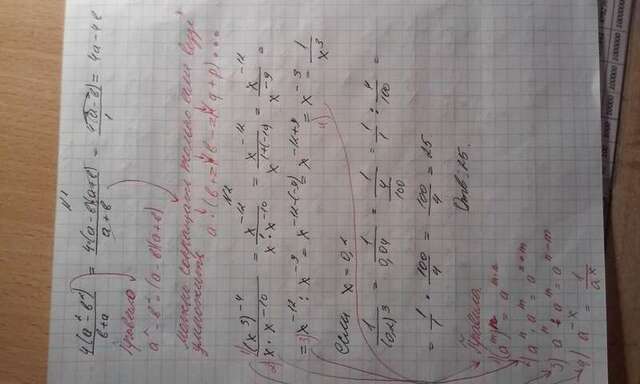 N1
4(a² - b²)/(b+a) = 4·(a-b)(a+b)/(a+b) = 4(a-b)/1 = 4a - 4b
Правило
a² - b² = (a-b)(a+b)
можно сокращать только если везде
умножить a·(b+z)(b-z)(q+p)...
N2
1) (x³)⁻⁴/(x·x⁻¹⁰) = x⁻¹²/(x¹·x⁻¹⁰) = x⁻¹²/x¹⁺⁽⁻¹⁰⁾ = x⁻¹²/x⁻⁹ =
2)
= 3) x⁻¹² : x⁻⁹ = x⁻¹²⁻⁽⁻⁹⁾ = x⁻¹²⁺⁹ = x⁻³ = 1/x³
4)
если x = 0,2
1/(0,2)³ = 1/0,04 = 1/(4/100) = 1/1 : 4/100 =
= 1/1 · 100/4 = 100/4 = 25
Отв: 25.
Правила.
1) (aᵐ)ⁿ = aᵐ·ⁿ
2) aⁿ · aᵐ = aⁿ⁺ᵐ
3) aⁿ : aᵐ = aⁿ⁻ᵐ
4) a⁻ˣ = 1/aˣ